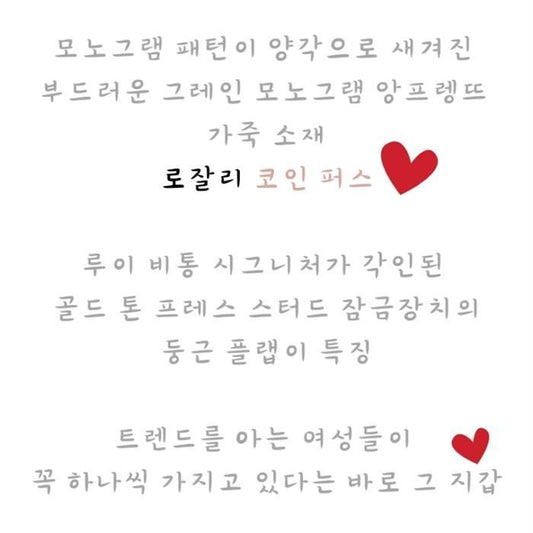 모노그램 패턴이 양각으로 새겨진
부드러운 그레인 모노그램 앙프렝뜨
가죽 소재
로잘리 코인 퍼스
루이 비통 시그니처가 각인된
골드 톤 프레스 스터드 잠금장치의
둥근 플랩이 특징
트렌드를 아는 여성들이
꼭 하나씩 가지고 있다는 바로 그 지갑